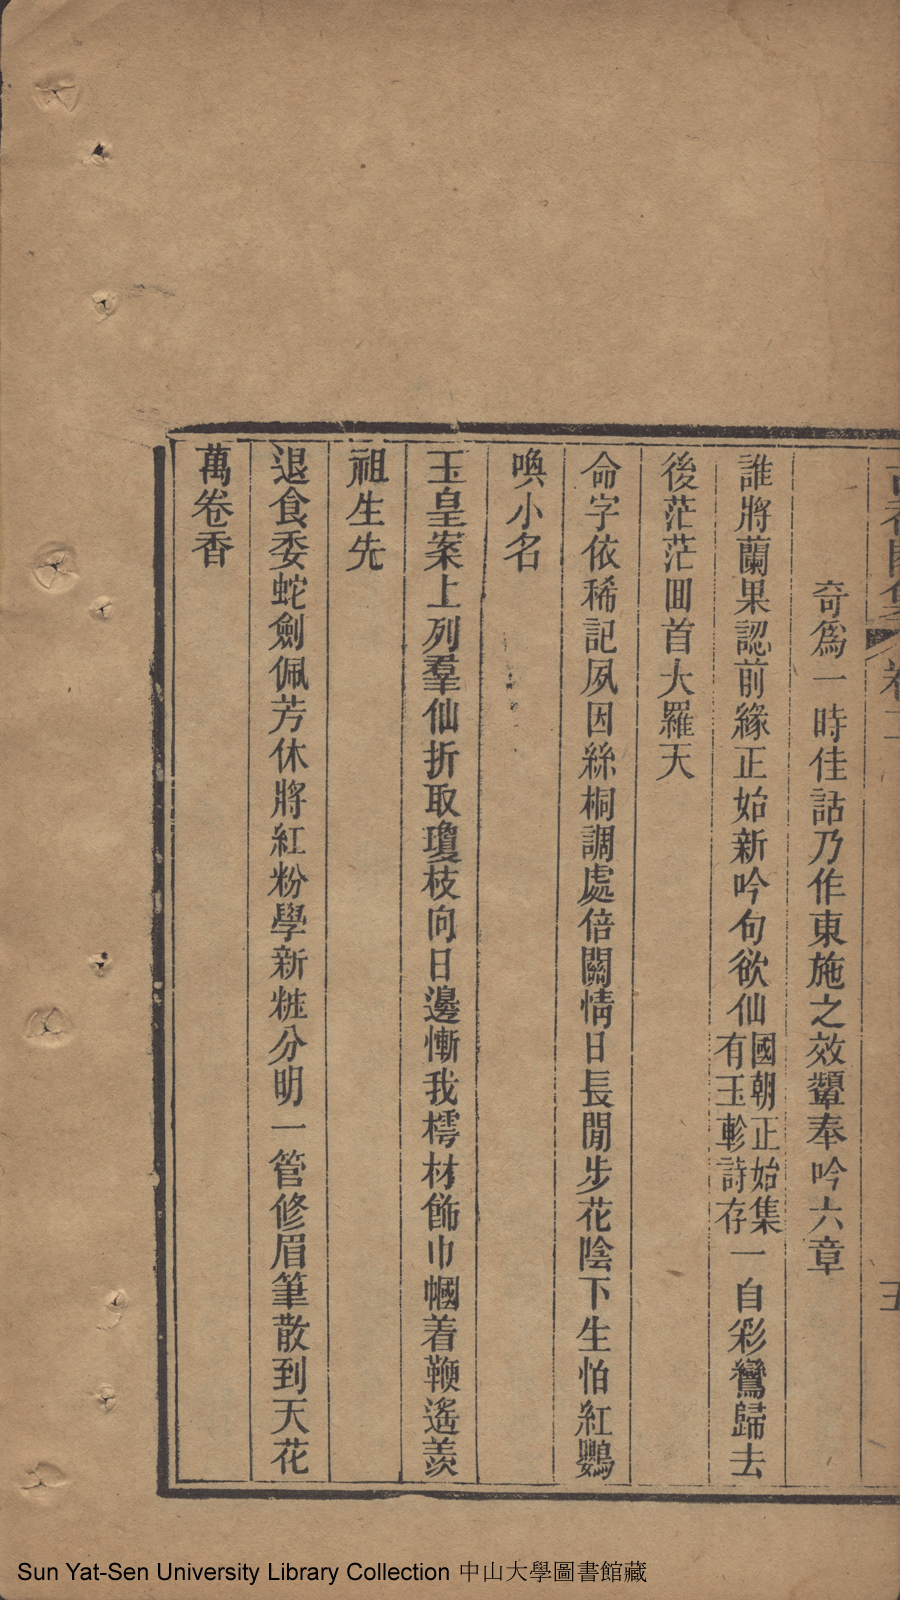 奇爲一時佳話乃作東施之效顰奉吟六章
誰將蘭果認前緣正始新吟句欲仙國朝正始集有玉軫詩存一自彩鸞歸去
後茫茫囬首大羅天
命字依稀記夙因絲桐調處倍關情日長閒步花陰下生怕紅鸚
喚小名
玉皇案上列羣仙折取瓊枝向日邊慚我樗材飾巾幗着鞭遙羨
祖生先
退食委蛇劍佩芳休將紅粉學新粧分明一管修眉筆散到天花
萬卷香
Sun Yat-Sen University Library Collection 中山大學圖書館藏